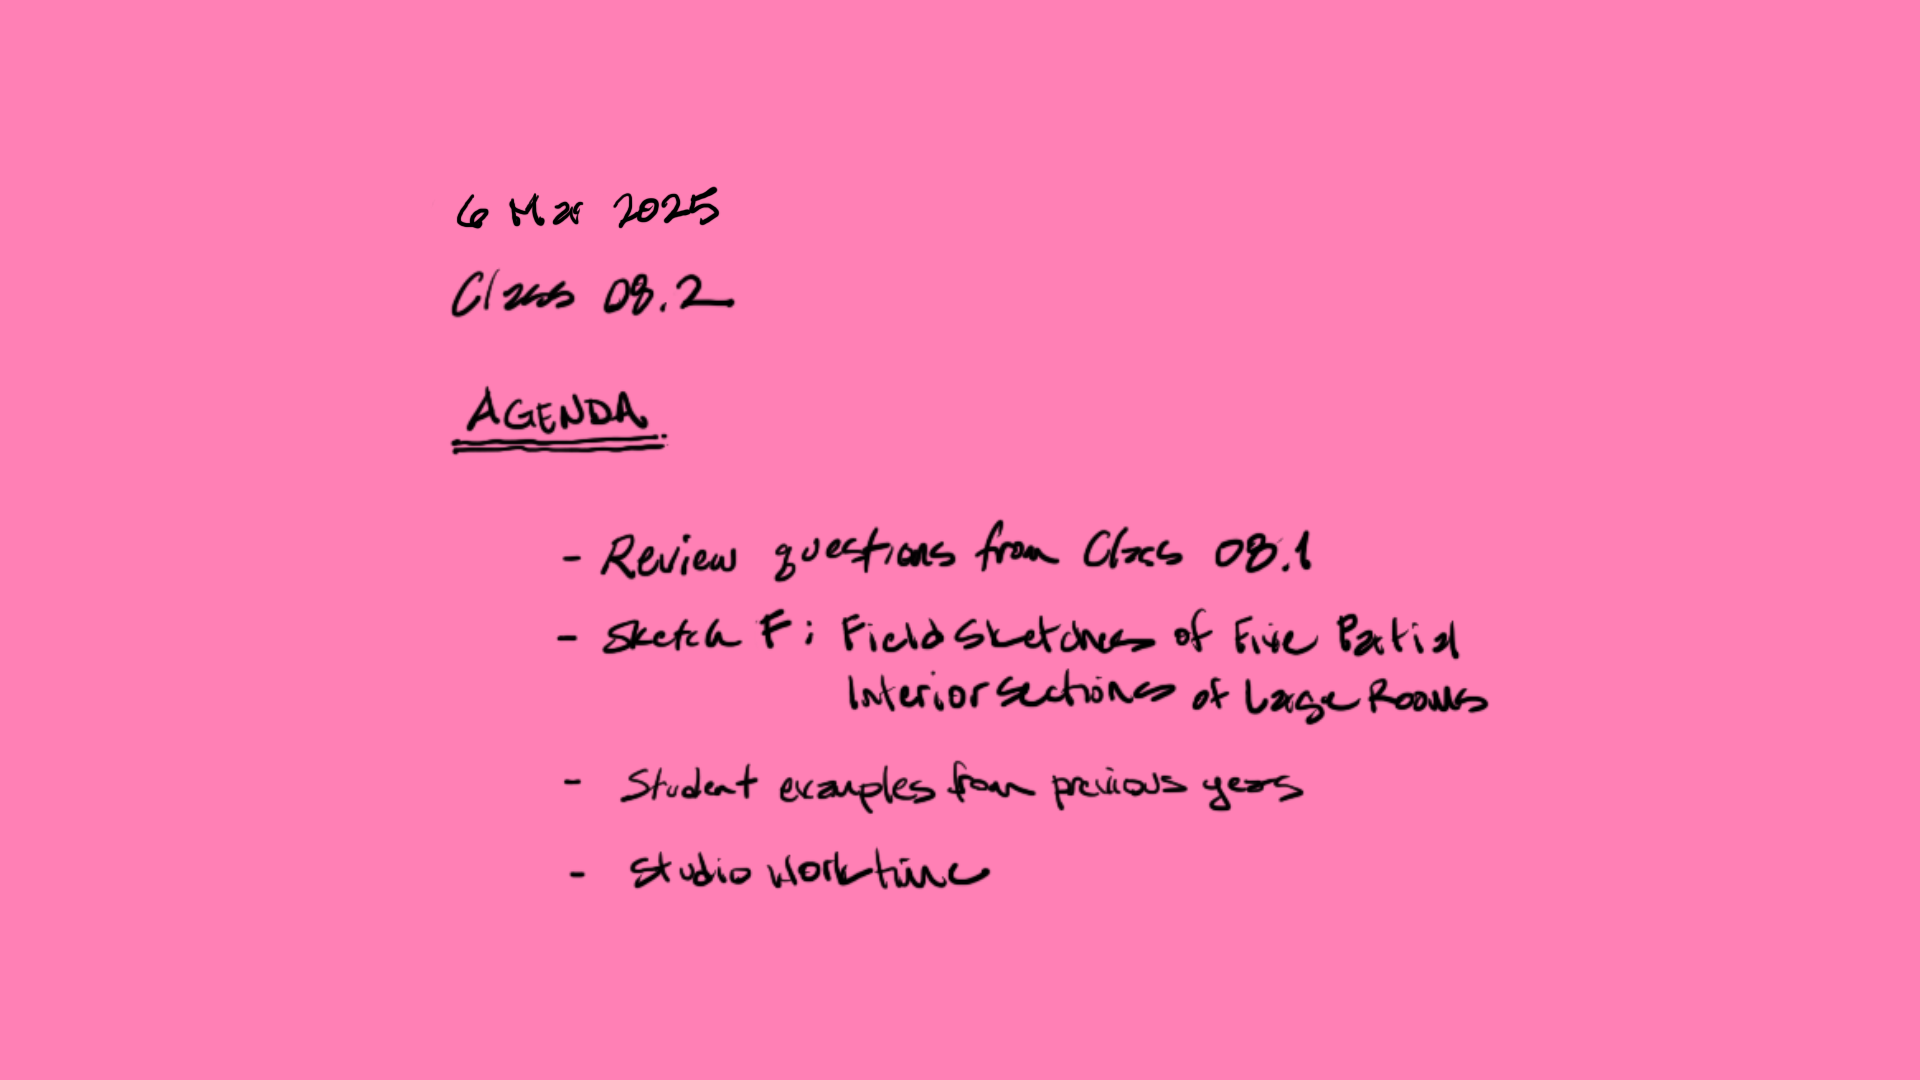 6 Mar 2025
Class 08.2
AGENDA
- Review questions from Class 08.1
- Sketch F: Field Sketches of Five Partial
Interior Sections of Large Rooms
- Student examples from previous years
- Studio Worktime